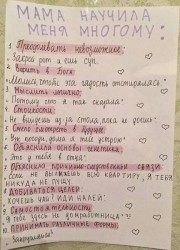 МАМА НАУЧИЛА
МЕНЯ МНОГОМУ:
1. Преодолевать невозможное:
Закрой рот и ешь суп.
2. Верить в Бога
Молись, чтоб эта гадость отстиралась
3. Мыслить логично:
Потому что я так сказала!
4. Стойкости:
Не выйдешь из-за стола пока не доешь!
5. Смотреть в будущее
Уж погоди, дома я тебе устрою!
6. Объяснила основы генетики:
Это у тебя в отца!
7. Объяснила причинно-следственные связи:
если не вылижешь всю квартиру, я тебя
никуда не пущу
8. Добиваться целей:
Хочешь чай? Иди налей!
9. Самостоятельности
Я тебе здесь не домработница!
10. Принимать различные формы: